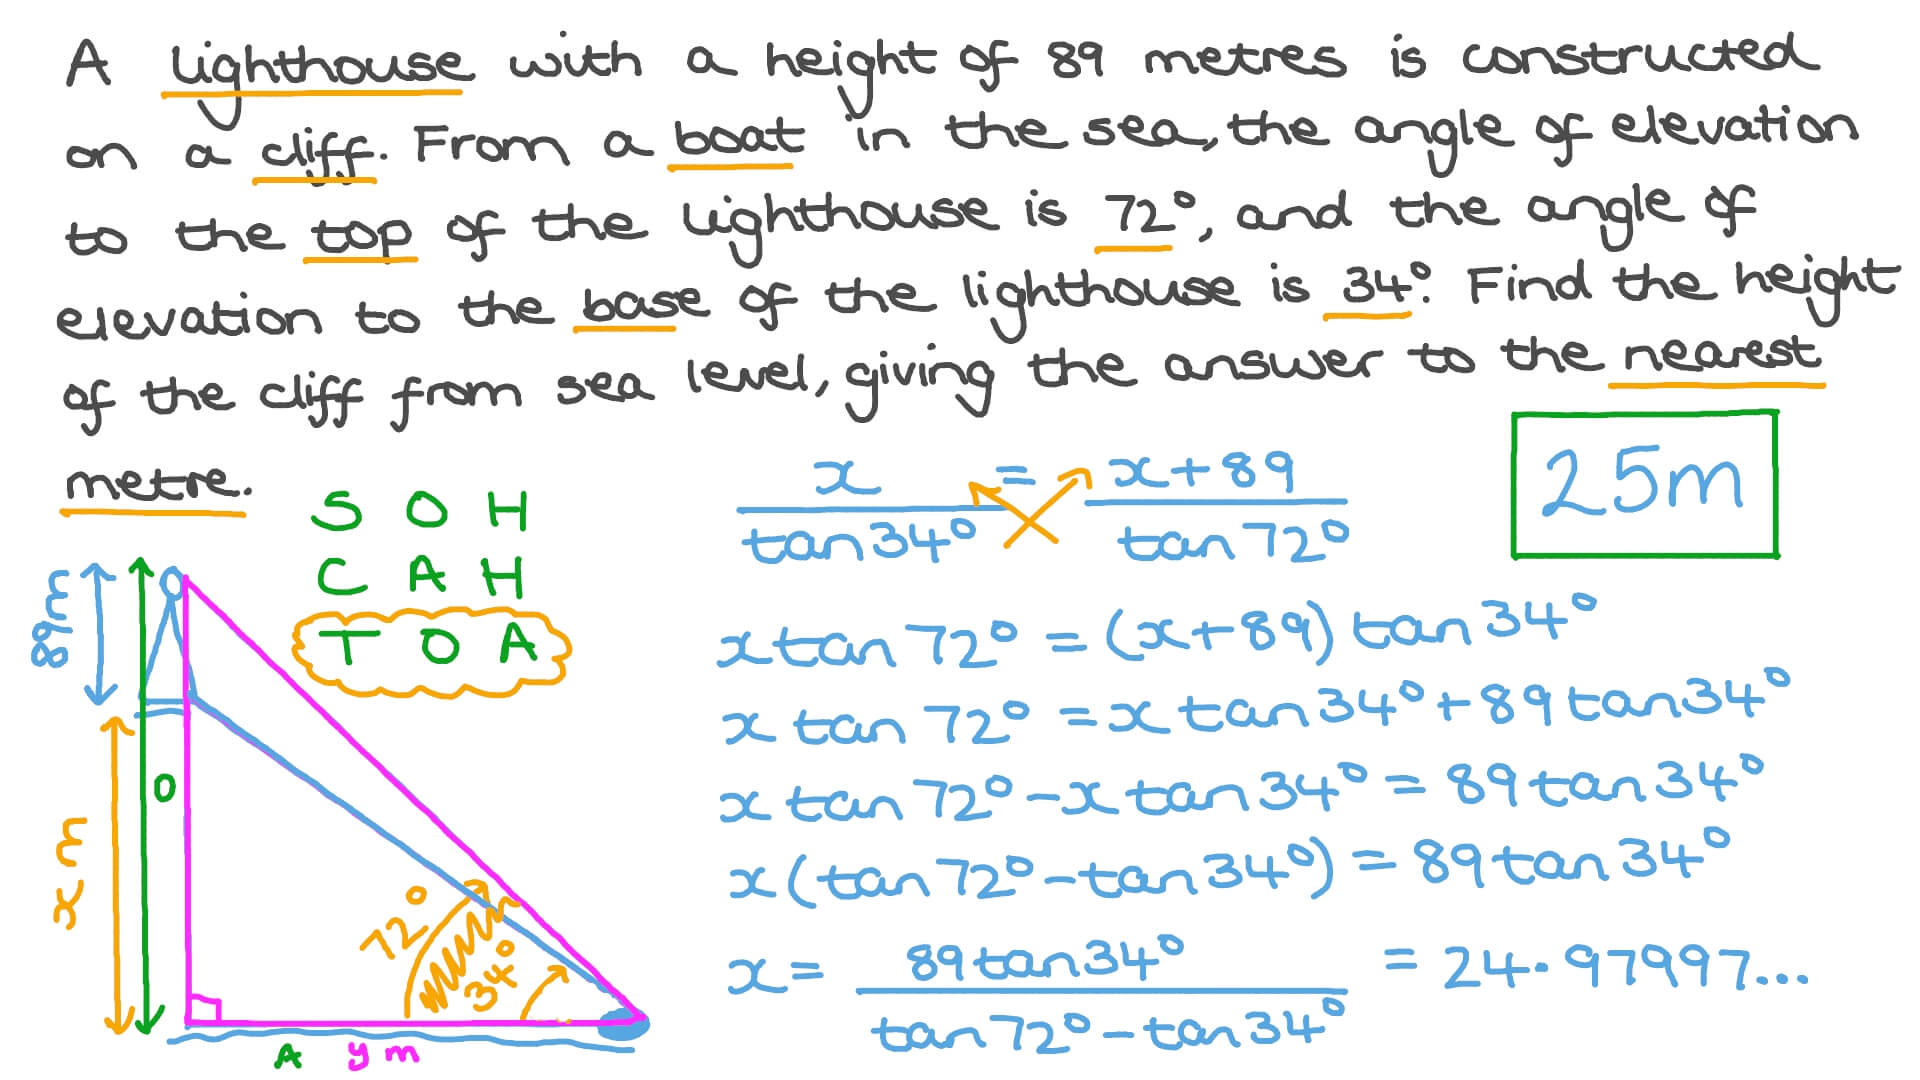 A lighthouse with a height of 89 metres is constructed
on a cliff. From a boat in the sea, the angle of elevation
to the top of the lighthouse is 72°, and the angle of
elevation to the base of the lighthouse is 34°. Find the height
of the cliff from sea level, giving the answer to the nearest
metre.
S O H
C A H
T O A
89m
x m
O
72°
34°
A y m
x/tan34° = x+89/tan72°
25m
x tan72° = (x+89) tan34°
x tan72° = x tan34° + 89 tan34°
x tan72° - x tan34° = 89 tan34°
x (tan72° - tan34°) = 89 tan34°
x = 89 tan34°/tan72° - tan34° = 24.97997...